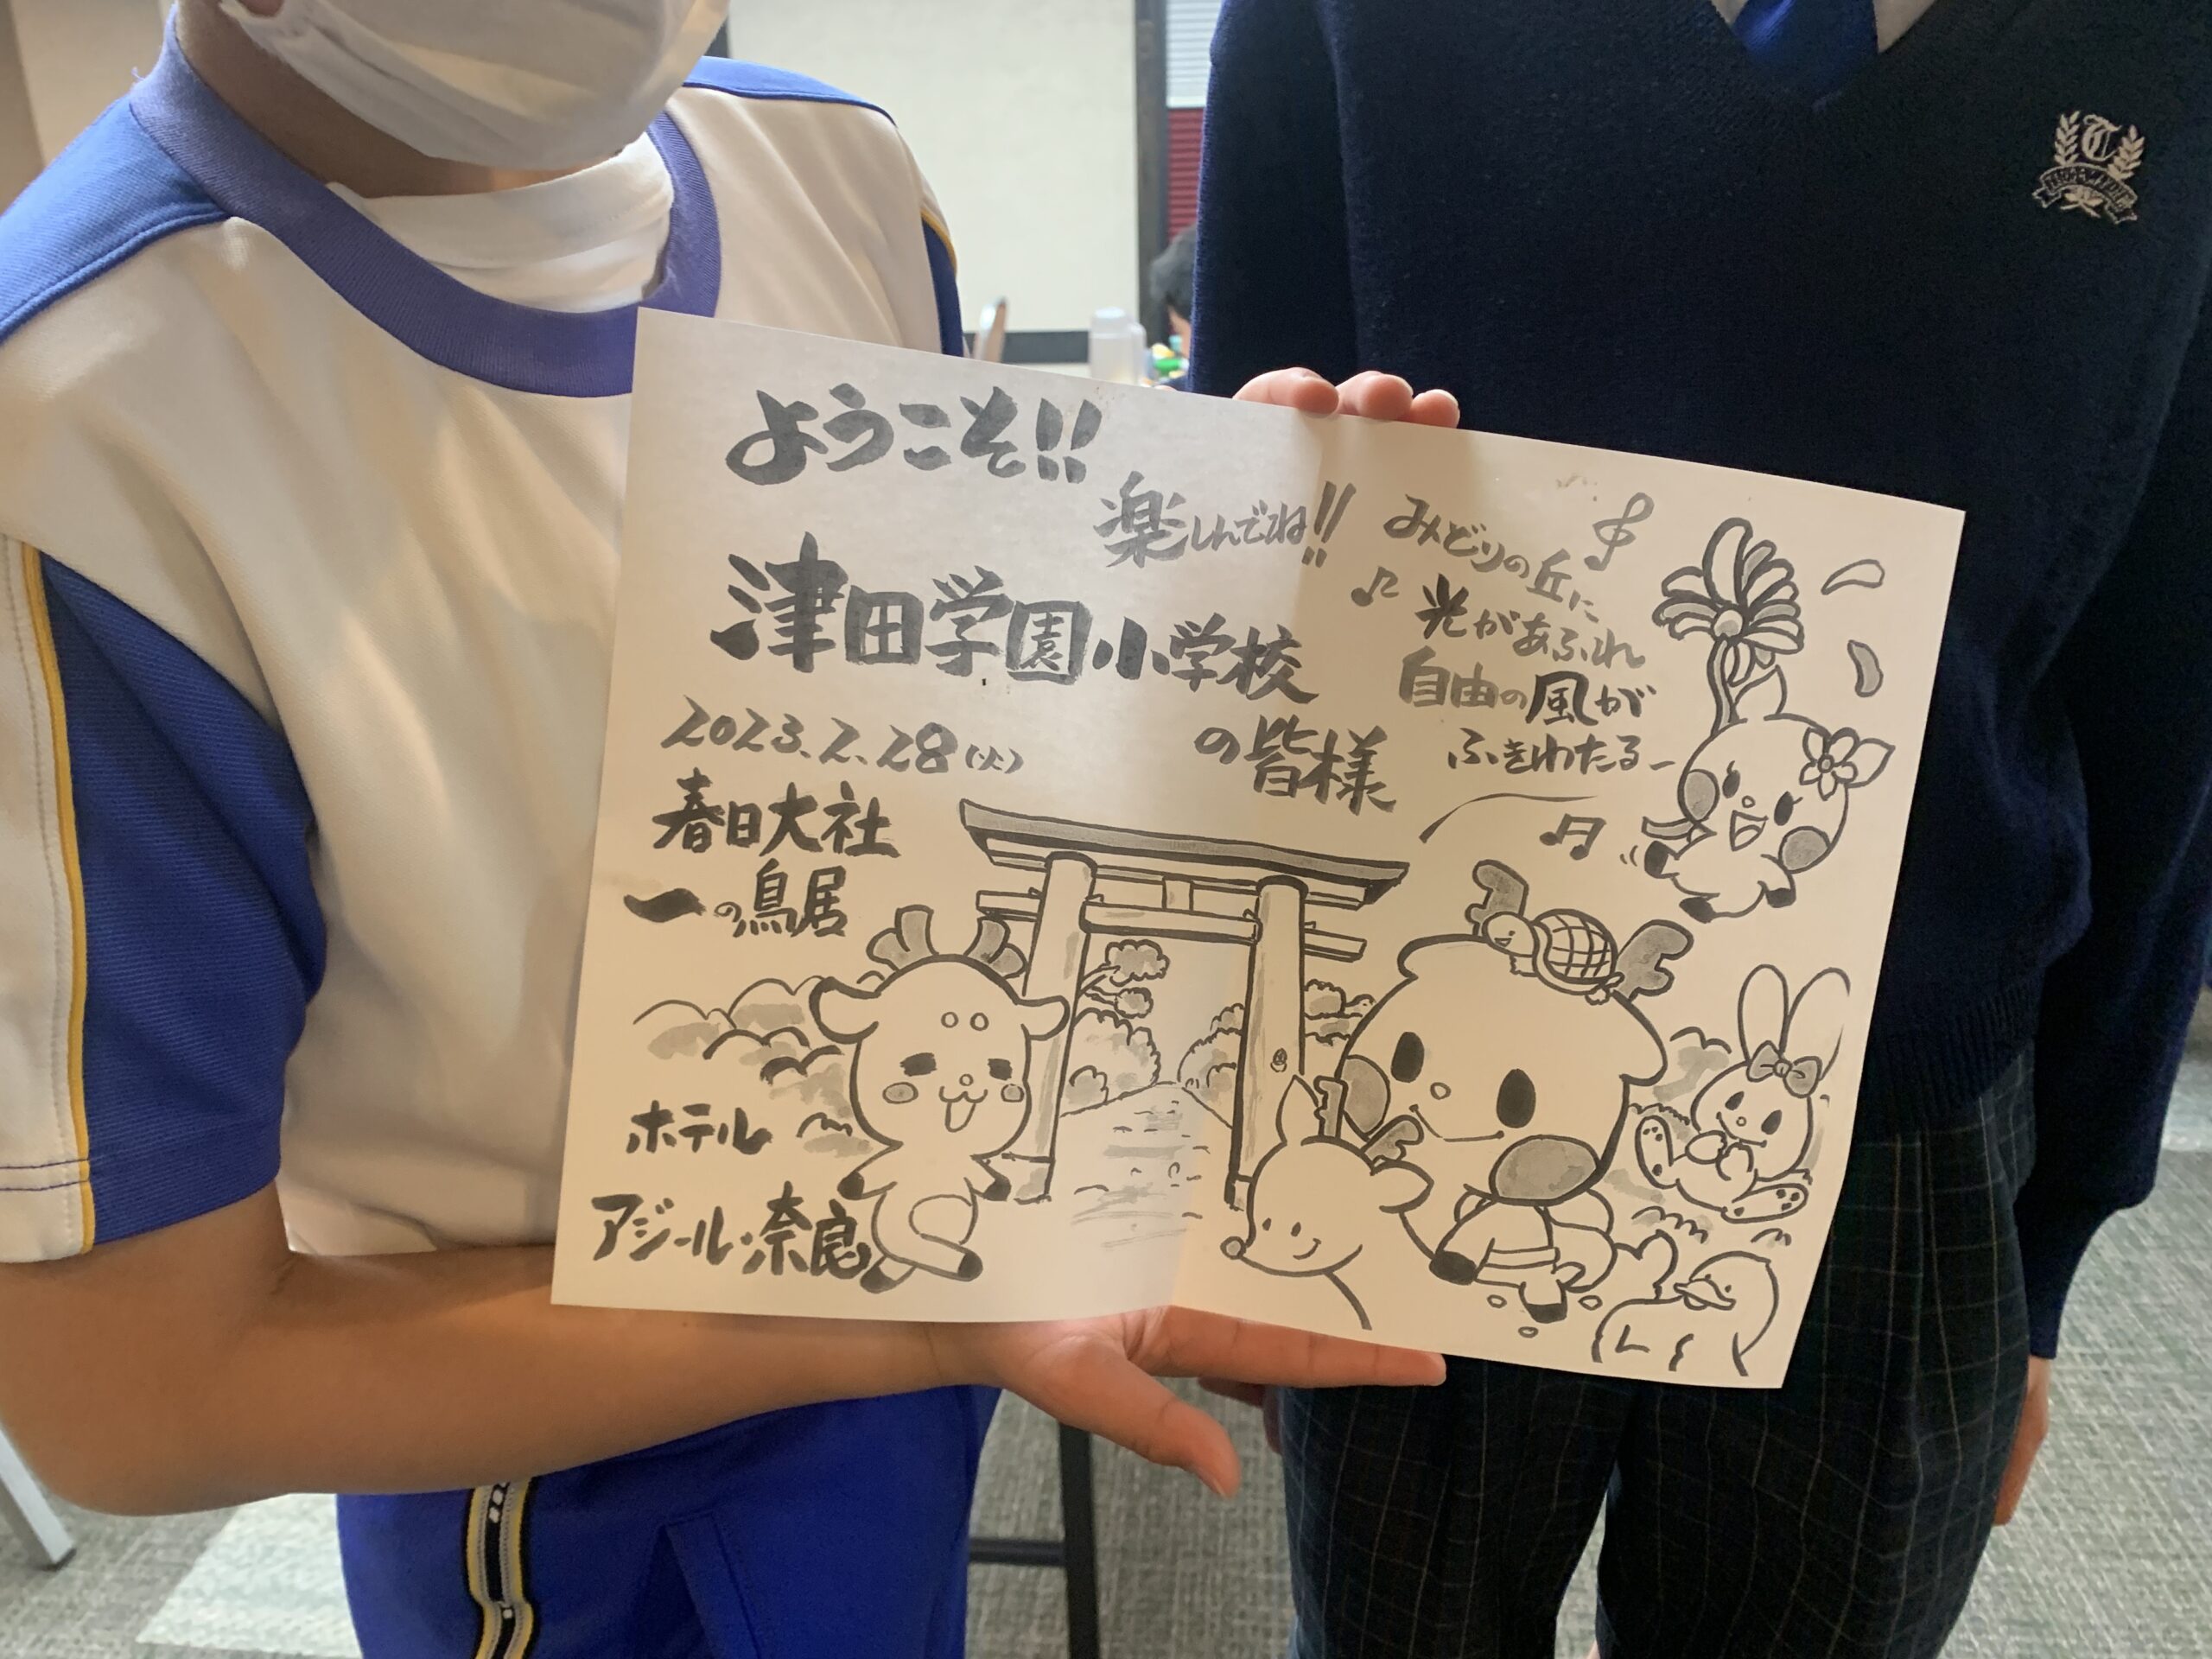 ようこそ!!
楽しんでね!!
津田学園小学校
の皆様
2023.2.28(火)
春日大社
一の鳥居
ホテル
アジール・奈良
みどりの丘に
光があふれ
自由の風が
ふきわたるー
T